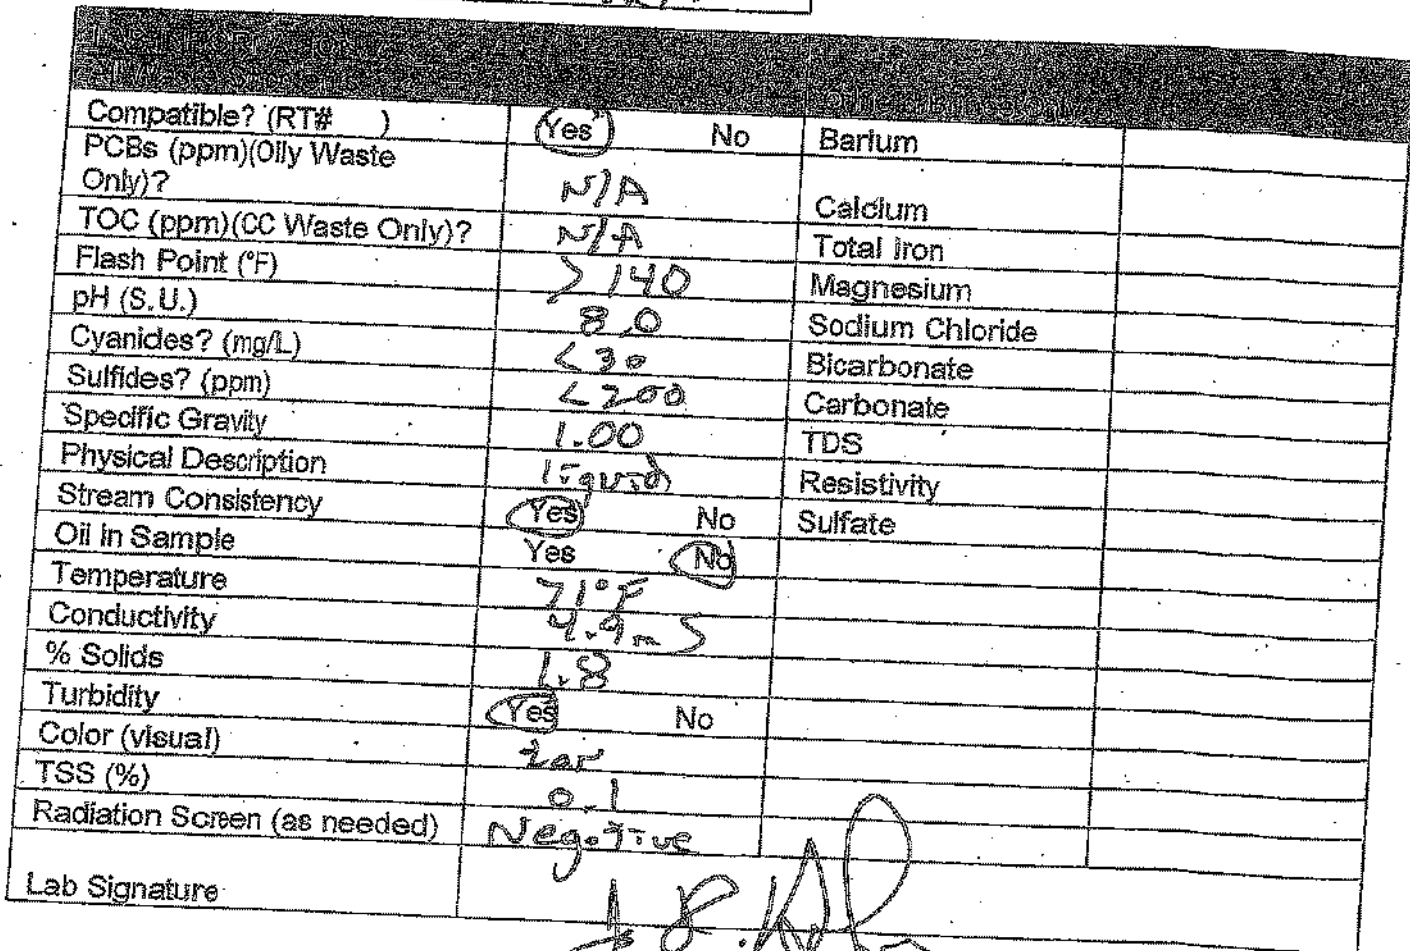 LAB INFORMATION
All Waste Streams
Compatible? (RT# ) Yes No Barium
PCBs (ppm)(Oily Waste Only)? N/A Calcium
TOC (ppm)(CC Waste Only)? N/A Total Iron
Flash Point (°F) > 140 Magnesium
pH (S.U.) 8.0 Sodium Chloride
Cyanides? (mg/L) < 30 Bicarbonate
Sulfides? (ppm) < 200 Carbonate
Specific Gravity 1.00 TDS
Physical Description liquid Resistivity
Stream Consistency Yes No Sulfate
Oil in Sample Yes No
Temperature 71°F
Conductivity 4.9mS
% Solids 1.8
Turbidity Yes No
Color (visual)
TSS (%) 0.1
Radiation Screen (as needed) Negative
Lab Signature